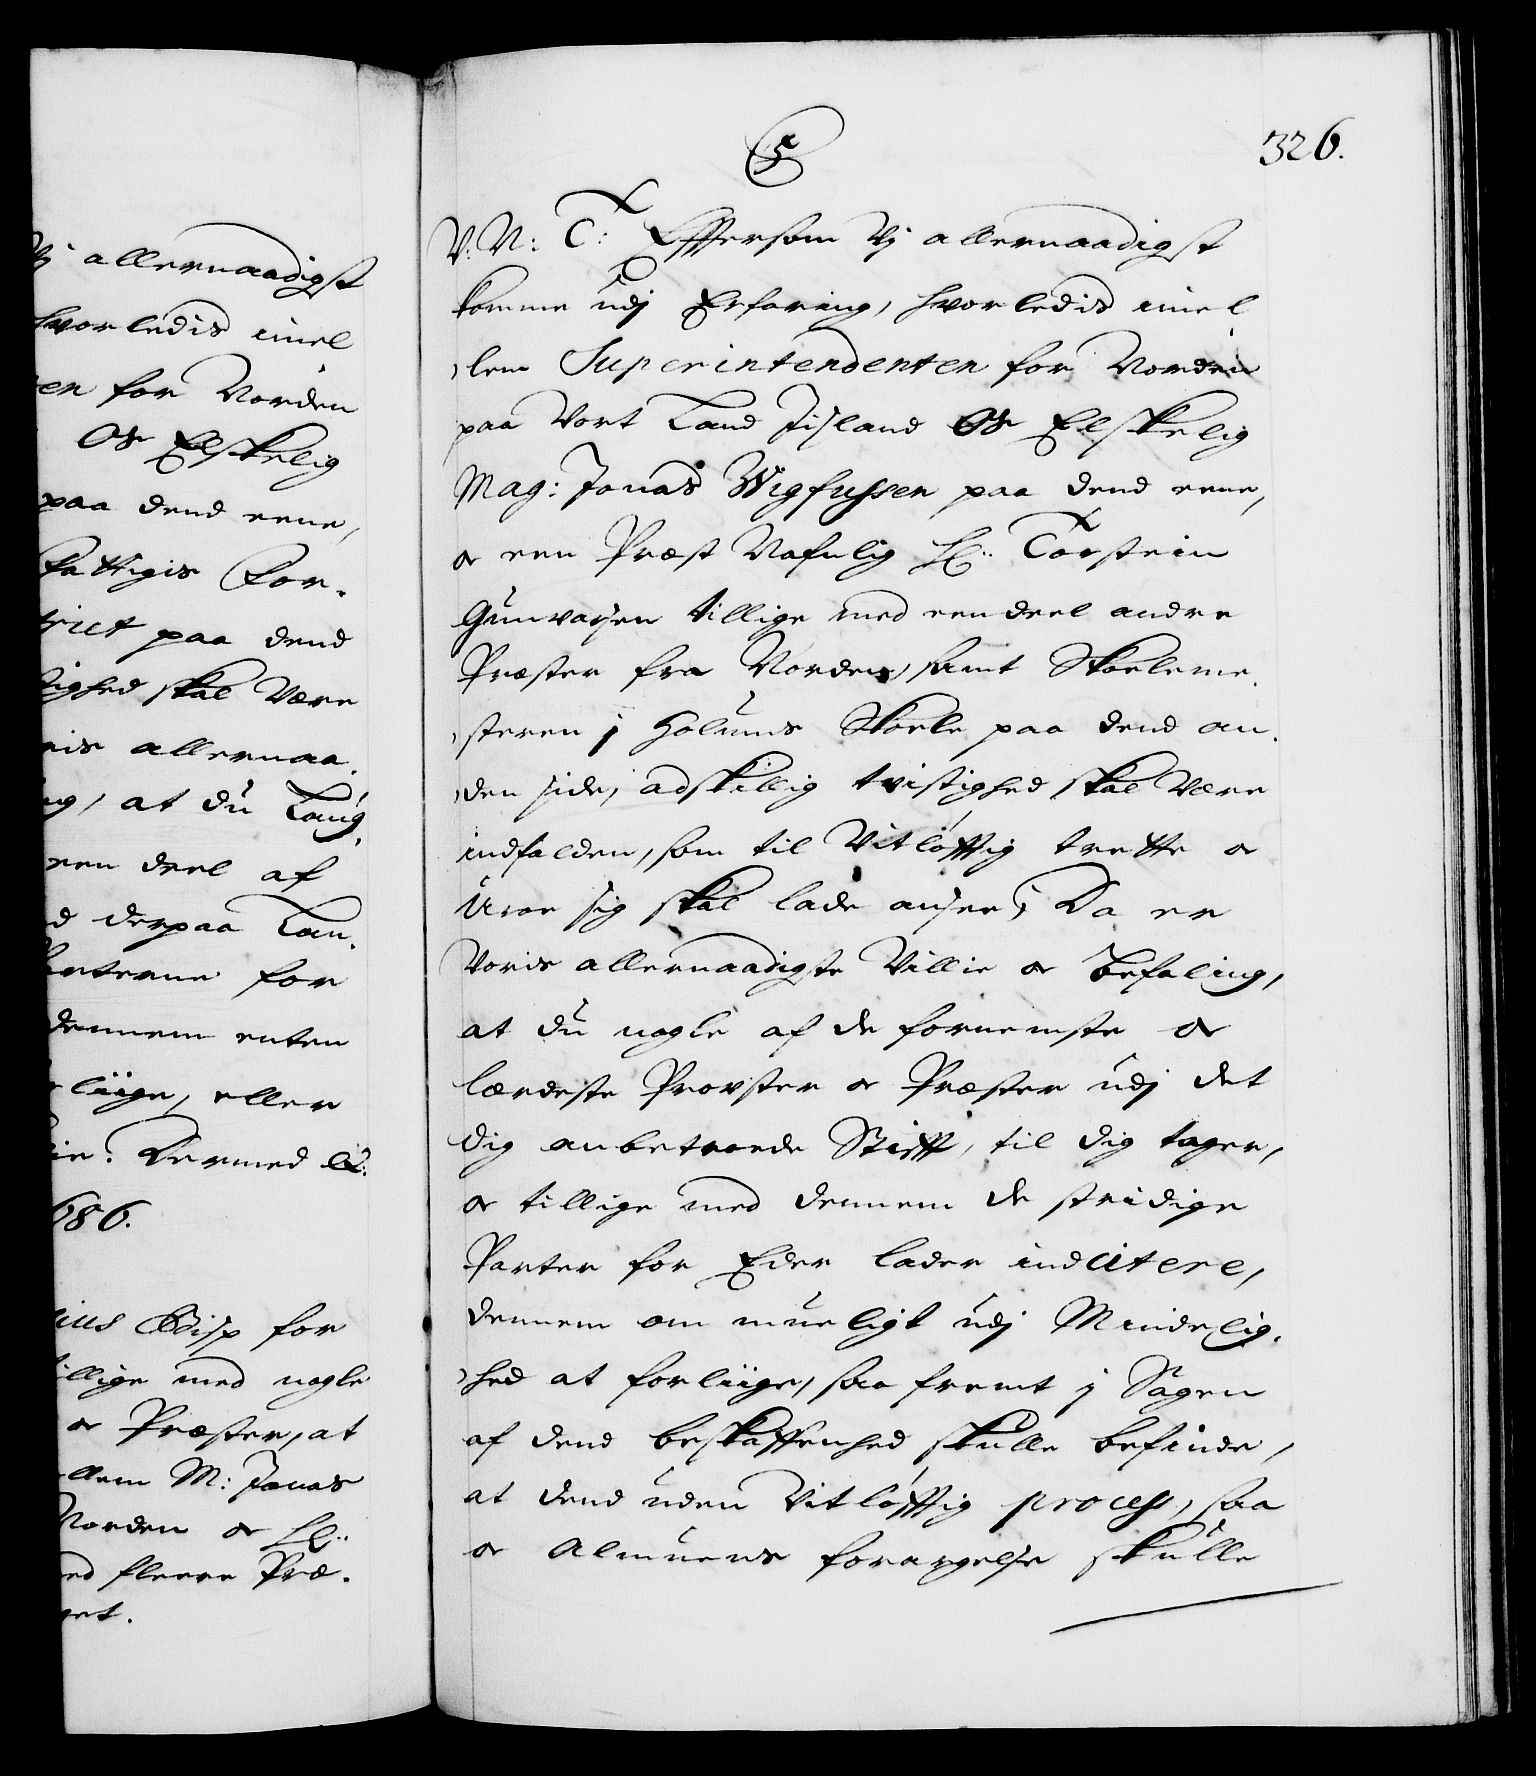 Vj allernaadigst
hvorledis imel
en for Norden
Os Elskelig
paa dend eene,
fattigis For-
trict paa dend
tighed skal være
ris allernaa-
ng, at du Laug-
een deel af
d derpaa Lan-
Parterne for
dennem enten
liige, eller
ie. Dermed &:
686.
ius Bisp for
illige med nogle
oc Præster, at
llem M: Jonas
Norden oc Hr:
ed fleere Præ-
get.
5
326.
V. N: T: Effterson Vj allernaadigst
komme udj Erfaring, hvorledis imel
lem Superintendenten for Norden
paa Vort Land Jisland Os Elskelig
Mag: Jonas Wigfussen paa dend eene,
oc een Præst Nafnlig Hr: Torstein
Gunvarsen tillige med een deel andre
Præster fra Norden, samt Skoeleme-
steren j Holums Skoele paa dend an-
den side, adskillig tvistighed skal være
indfalden, som til Vitløfftig trette oc
Uroe sig skal lade ansee; Da er
Voris allernaadigste Villie oc Befaling,
at du nogle af de fornemste oc
lærdeste Provster oc Præster udj det
dig anbetroede Stifft, til dig tager,
oc tillige med dennem de stridige
Parter for Eder lader indcitere,
dennem om mueligt udj Mindelig-
hed at forliige, saa fremt j Sagen
af dend beskaffenhed skulle befinde,
at dend uden Vitløfftig process, saa
oc Almuens forargelse skulle